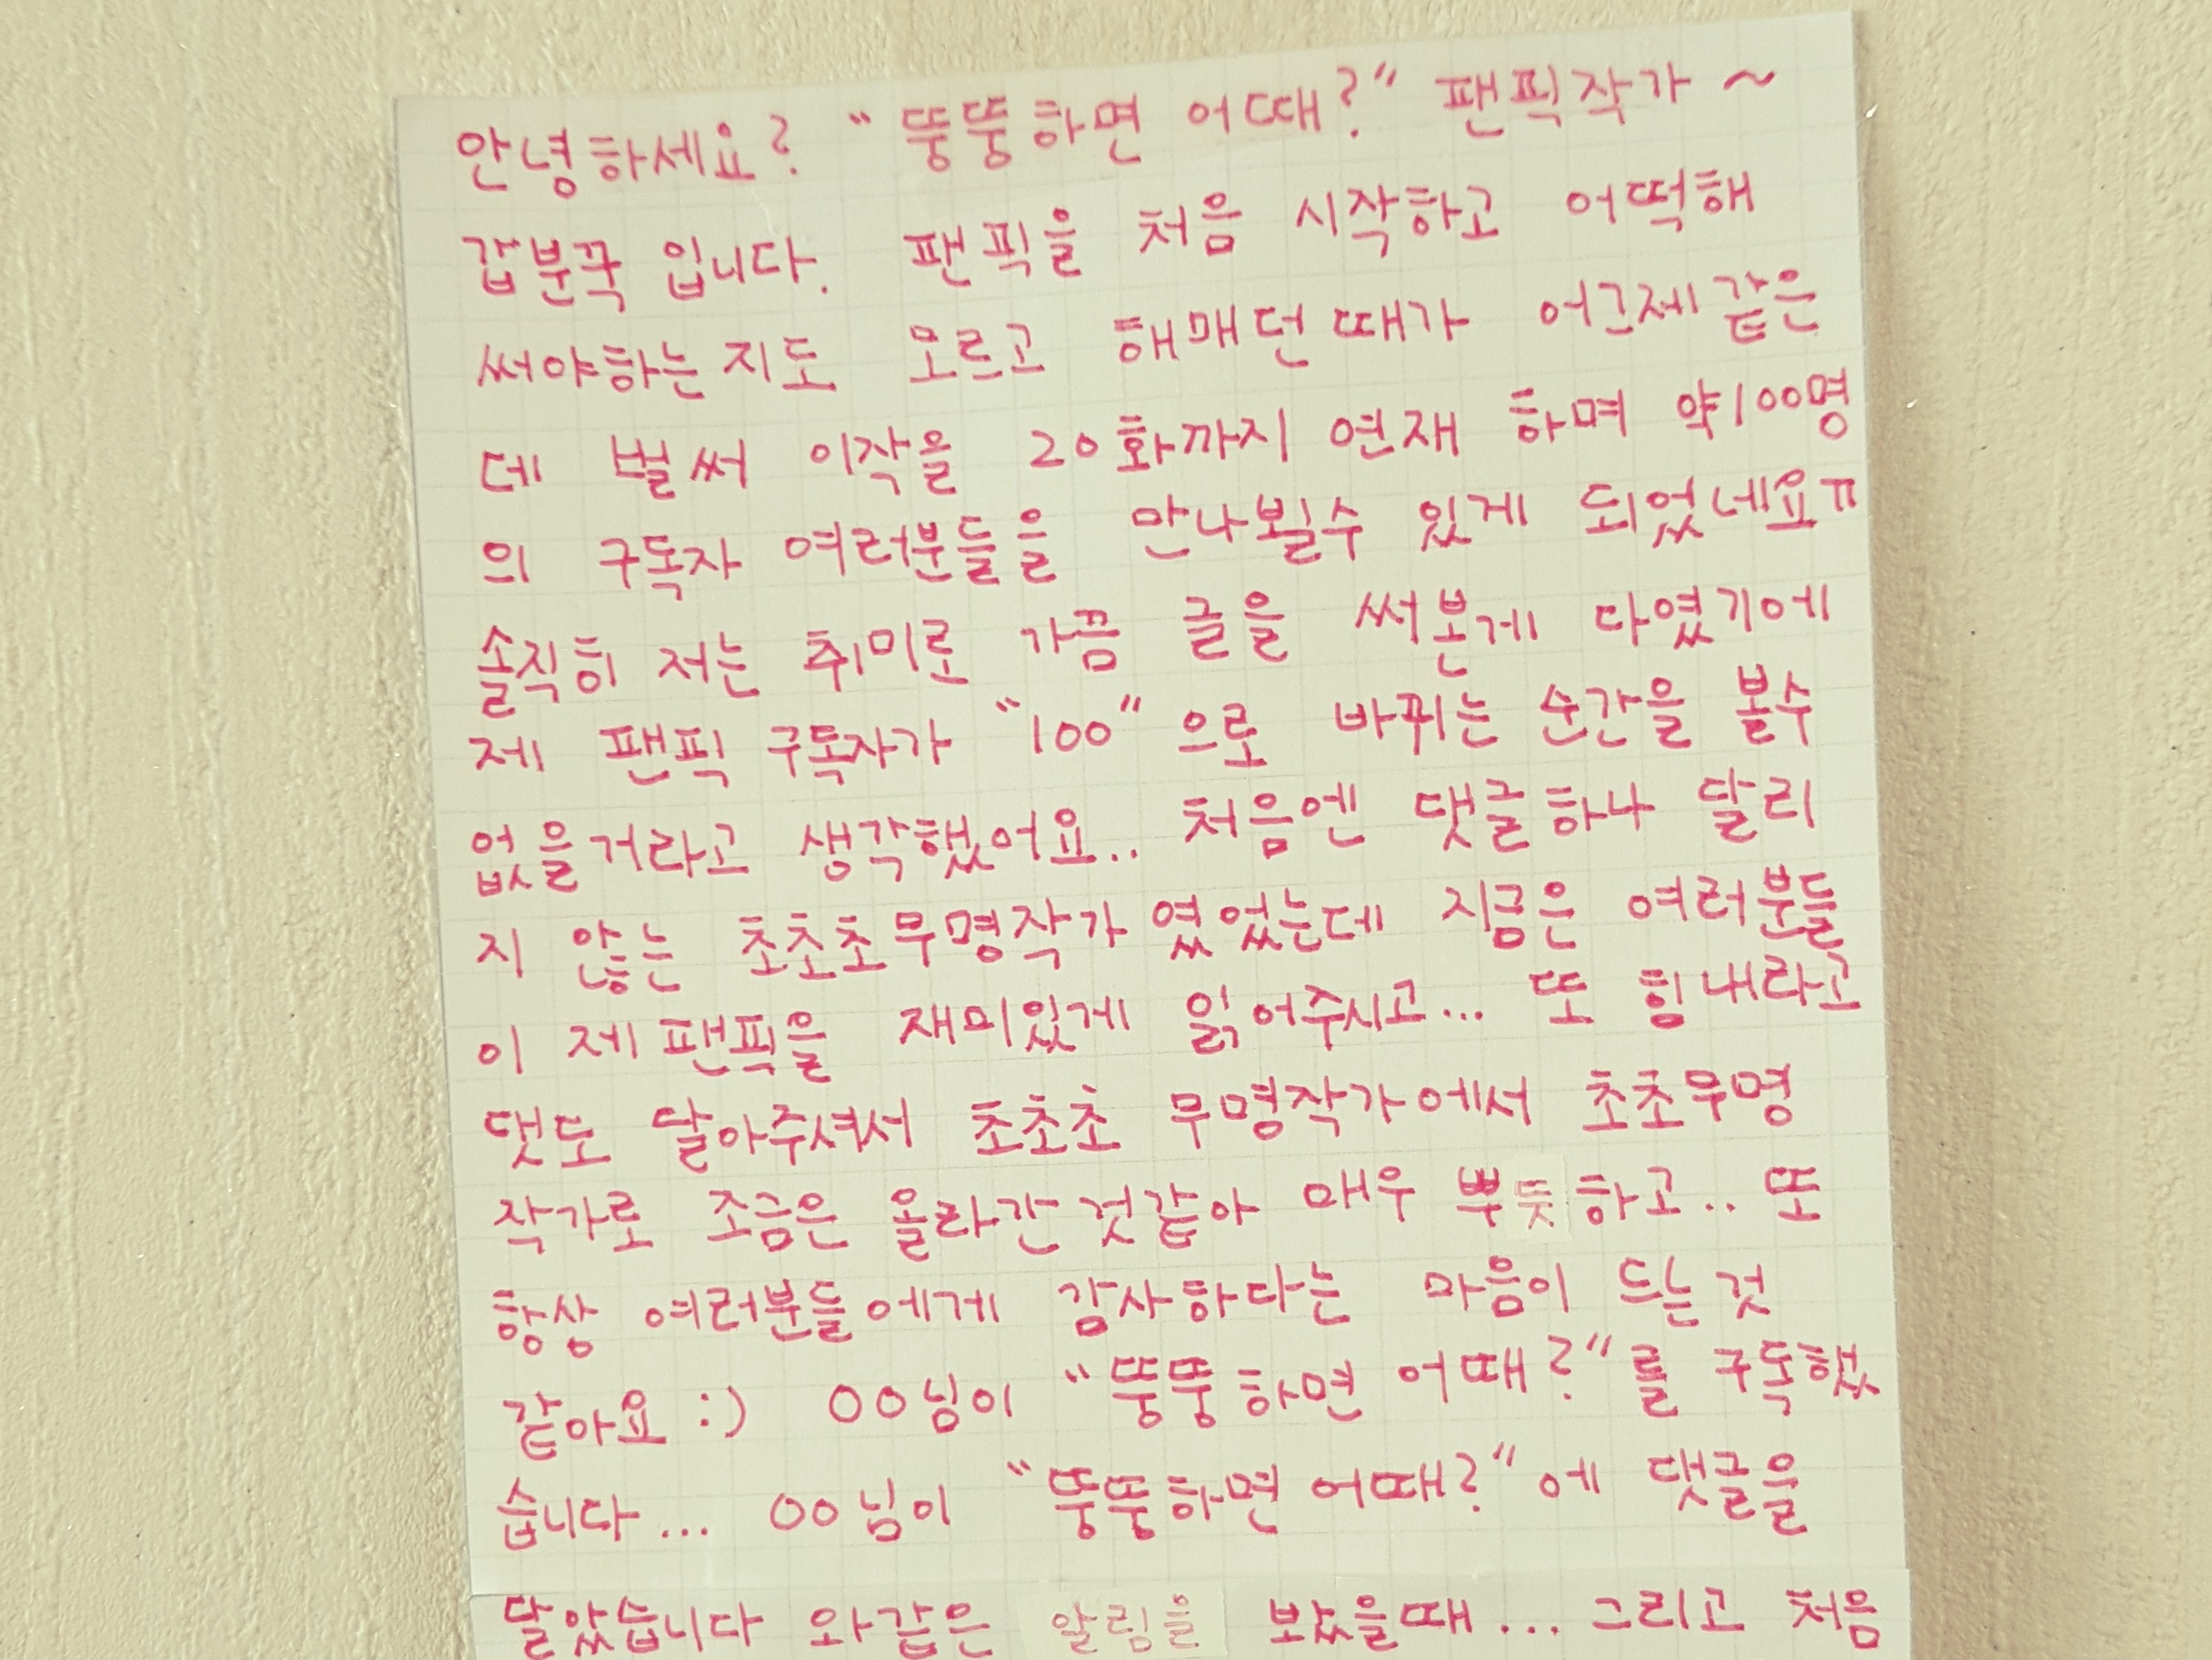 안녕하세요? "뚱뚱하면 어때?" 팬픽작가 ~
갑분꾹 입니다. 팬픽을 처음 시작하고 어떡해
써야하는지도 모르고 해매던때가 어그제같은
데 벌써 이작을 20화까지 연재 하며 약100명
의 구독자 여러분들을 만나뵐수 있게 되었네요ㅠ
솔직히 저는 취미로 가끔 글을 써본게 다였기에
제 팬픽 구독자가 "100"으로 바뀌는 순간을 볼수
없을거라고 생각했어요.. 처음엔 댓글하나 달리
지 않는 초초초무명작가였었는데 지금은 여러분들
이 제팬픽을 재미있게 읽어주시고... 또 힘내라고
댓도 달아주셔서 초초초 무명작가에서 초초무명
작가로 조금은 올라간것같아 매우 뿌듯하고.. 또
항상 여러분들에게 감사하다는 마음이 드는것
같아요 :) OO님이 "뚱뚱하면 어때?"를 구독했
습니다... OO님이 "뚱뚱하면 어때?"에 댓글을
달았습니다 와같은 알림을 봤을때... 그리고 처음